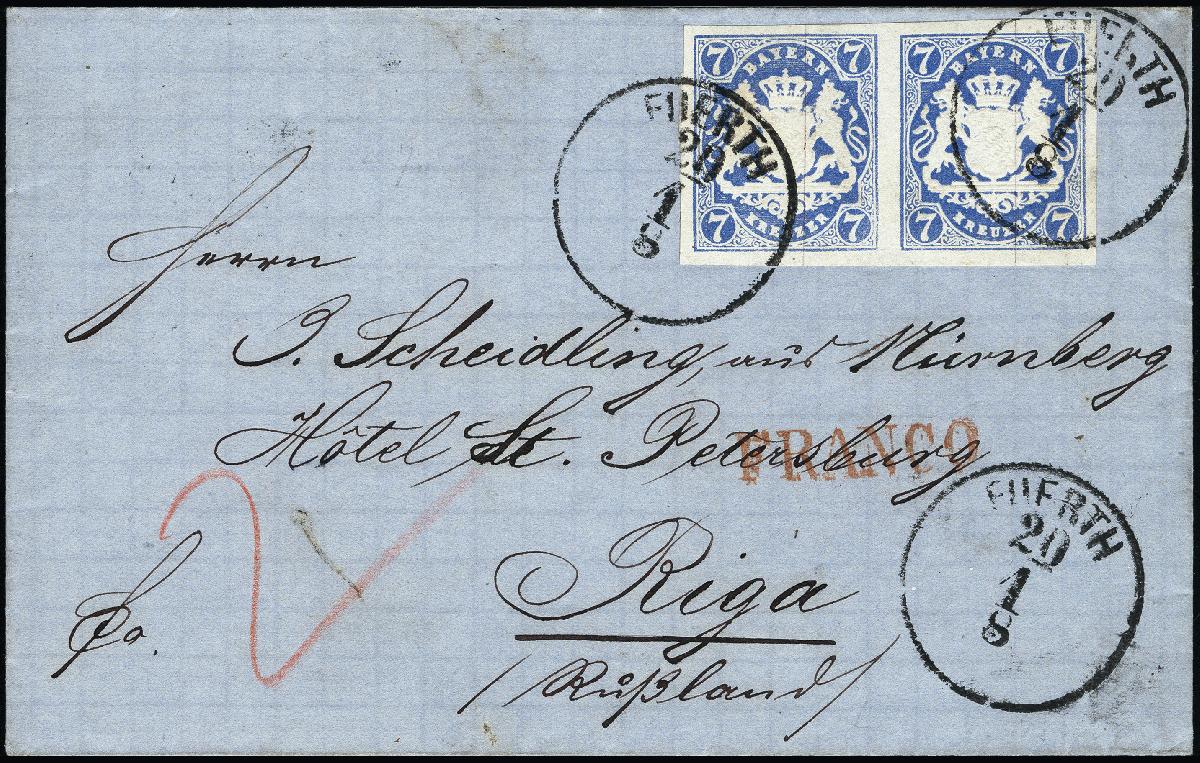 7 BAYERN 7
7 KREUZER 7
7 BAYERN 7
7 KREUZER 7
FUERTH
20
1
8
FUERTH
20
1
8
Herrn
J. Scheidling, aus Nürnberg
Hôtel St. Petersburg
FRANCO
Riga
(Rußland)
fo.
2
FUERTH
20
1
8